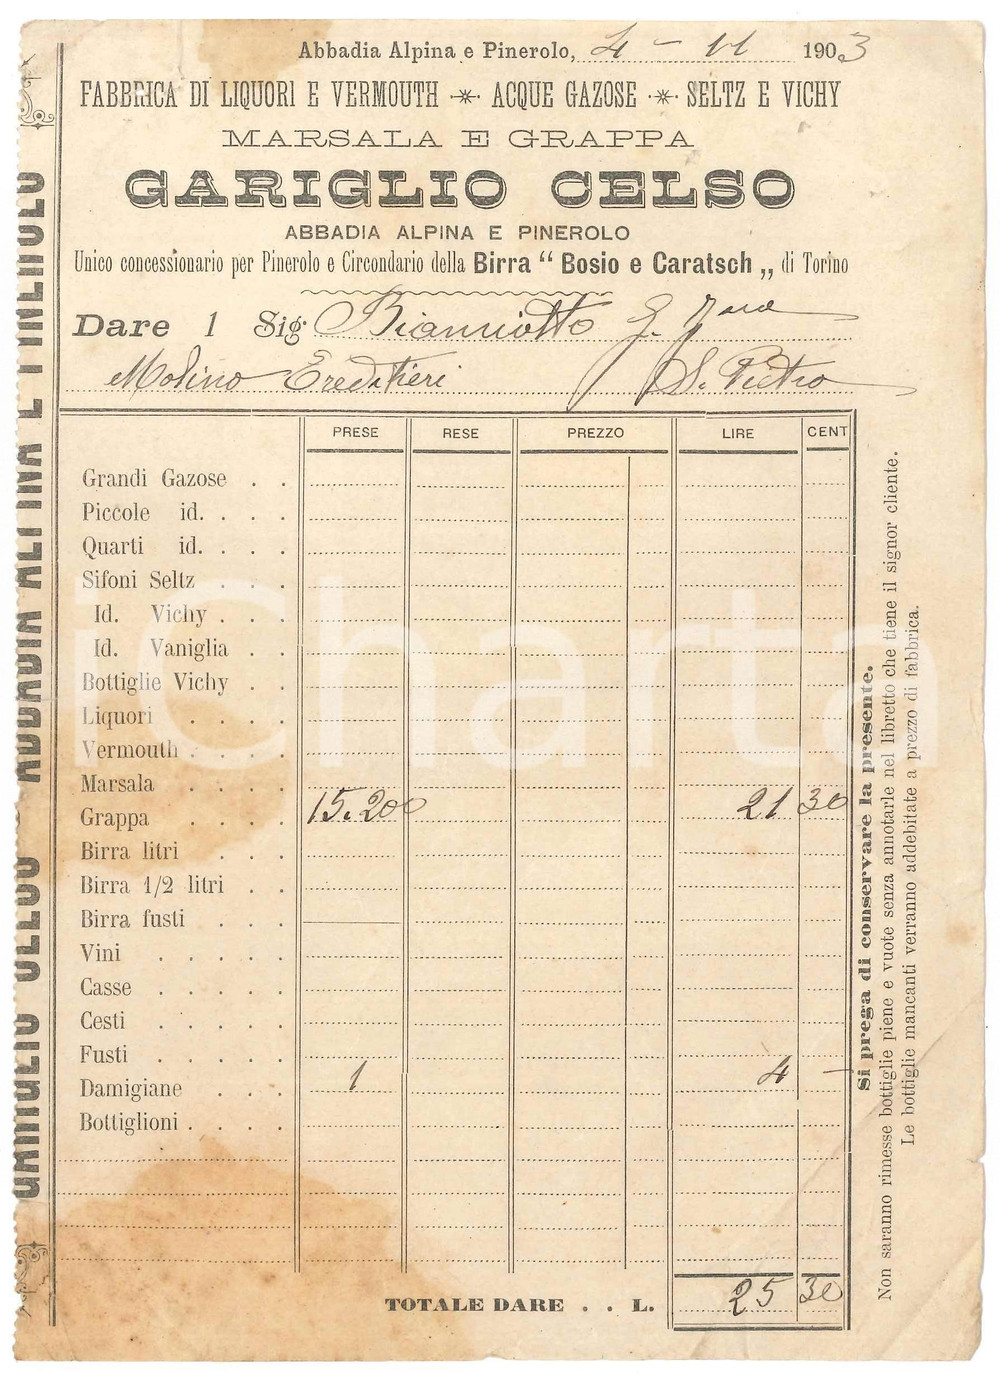 Abbadia Alpina e Pinerolo, 4 - 11 1903
FABBRICA DI LIQUORI E VERMOUTH ACQUE GAZOSE SELTZ E VICHY
MARSALA E GRAPPA
GARIGLIO CELSO
ABBADIA ALPINA E PINEROLO
Unico concessionario per Pinerolo e Circondario della Birra “ Bosio e Caratsch „ di Torino
Dare l Sig. Bianciotto G.
Molino Ereditieri S. Pietro
PRESE RESE PREZZO LIRE CENT
Grandi Gazose . .
Piccole id. . . .
Quarti id. . . .
Sifoni Seltz . . .
Id. Vichy . . .
Id. Vaniglia . .
Bottiglie Vichy . .
Liquori . . . .
Vermouth . . . .
Marsala . . . .
Grappa . . . 15.200 21 30
Birra litri . . .
Birra 1/2 litri . .
Birra fusti . . .
Vini . . . . .
Casse . . . . .
Cesti . . . . .
Fusti . . . . .
Damigiane . . . 1 4 -
Bottiglioni . . . .
TOTALE DARE . . L. 25 30
Si prega di conservare la presente.
Non saranno rimesse bottiglie piene e vuote senza annotarle nel libretto che tiene il signor cliente.
Le bottiglie mancanti verranno addebitate a prezzo di fabbrica.
GARIGLIO CELSO ABBADIA ALPINA E PINEROLO
iCharta